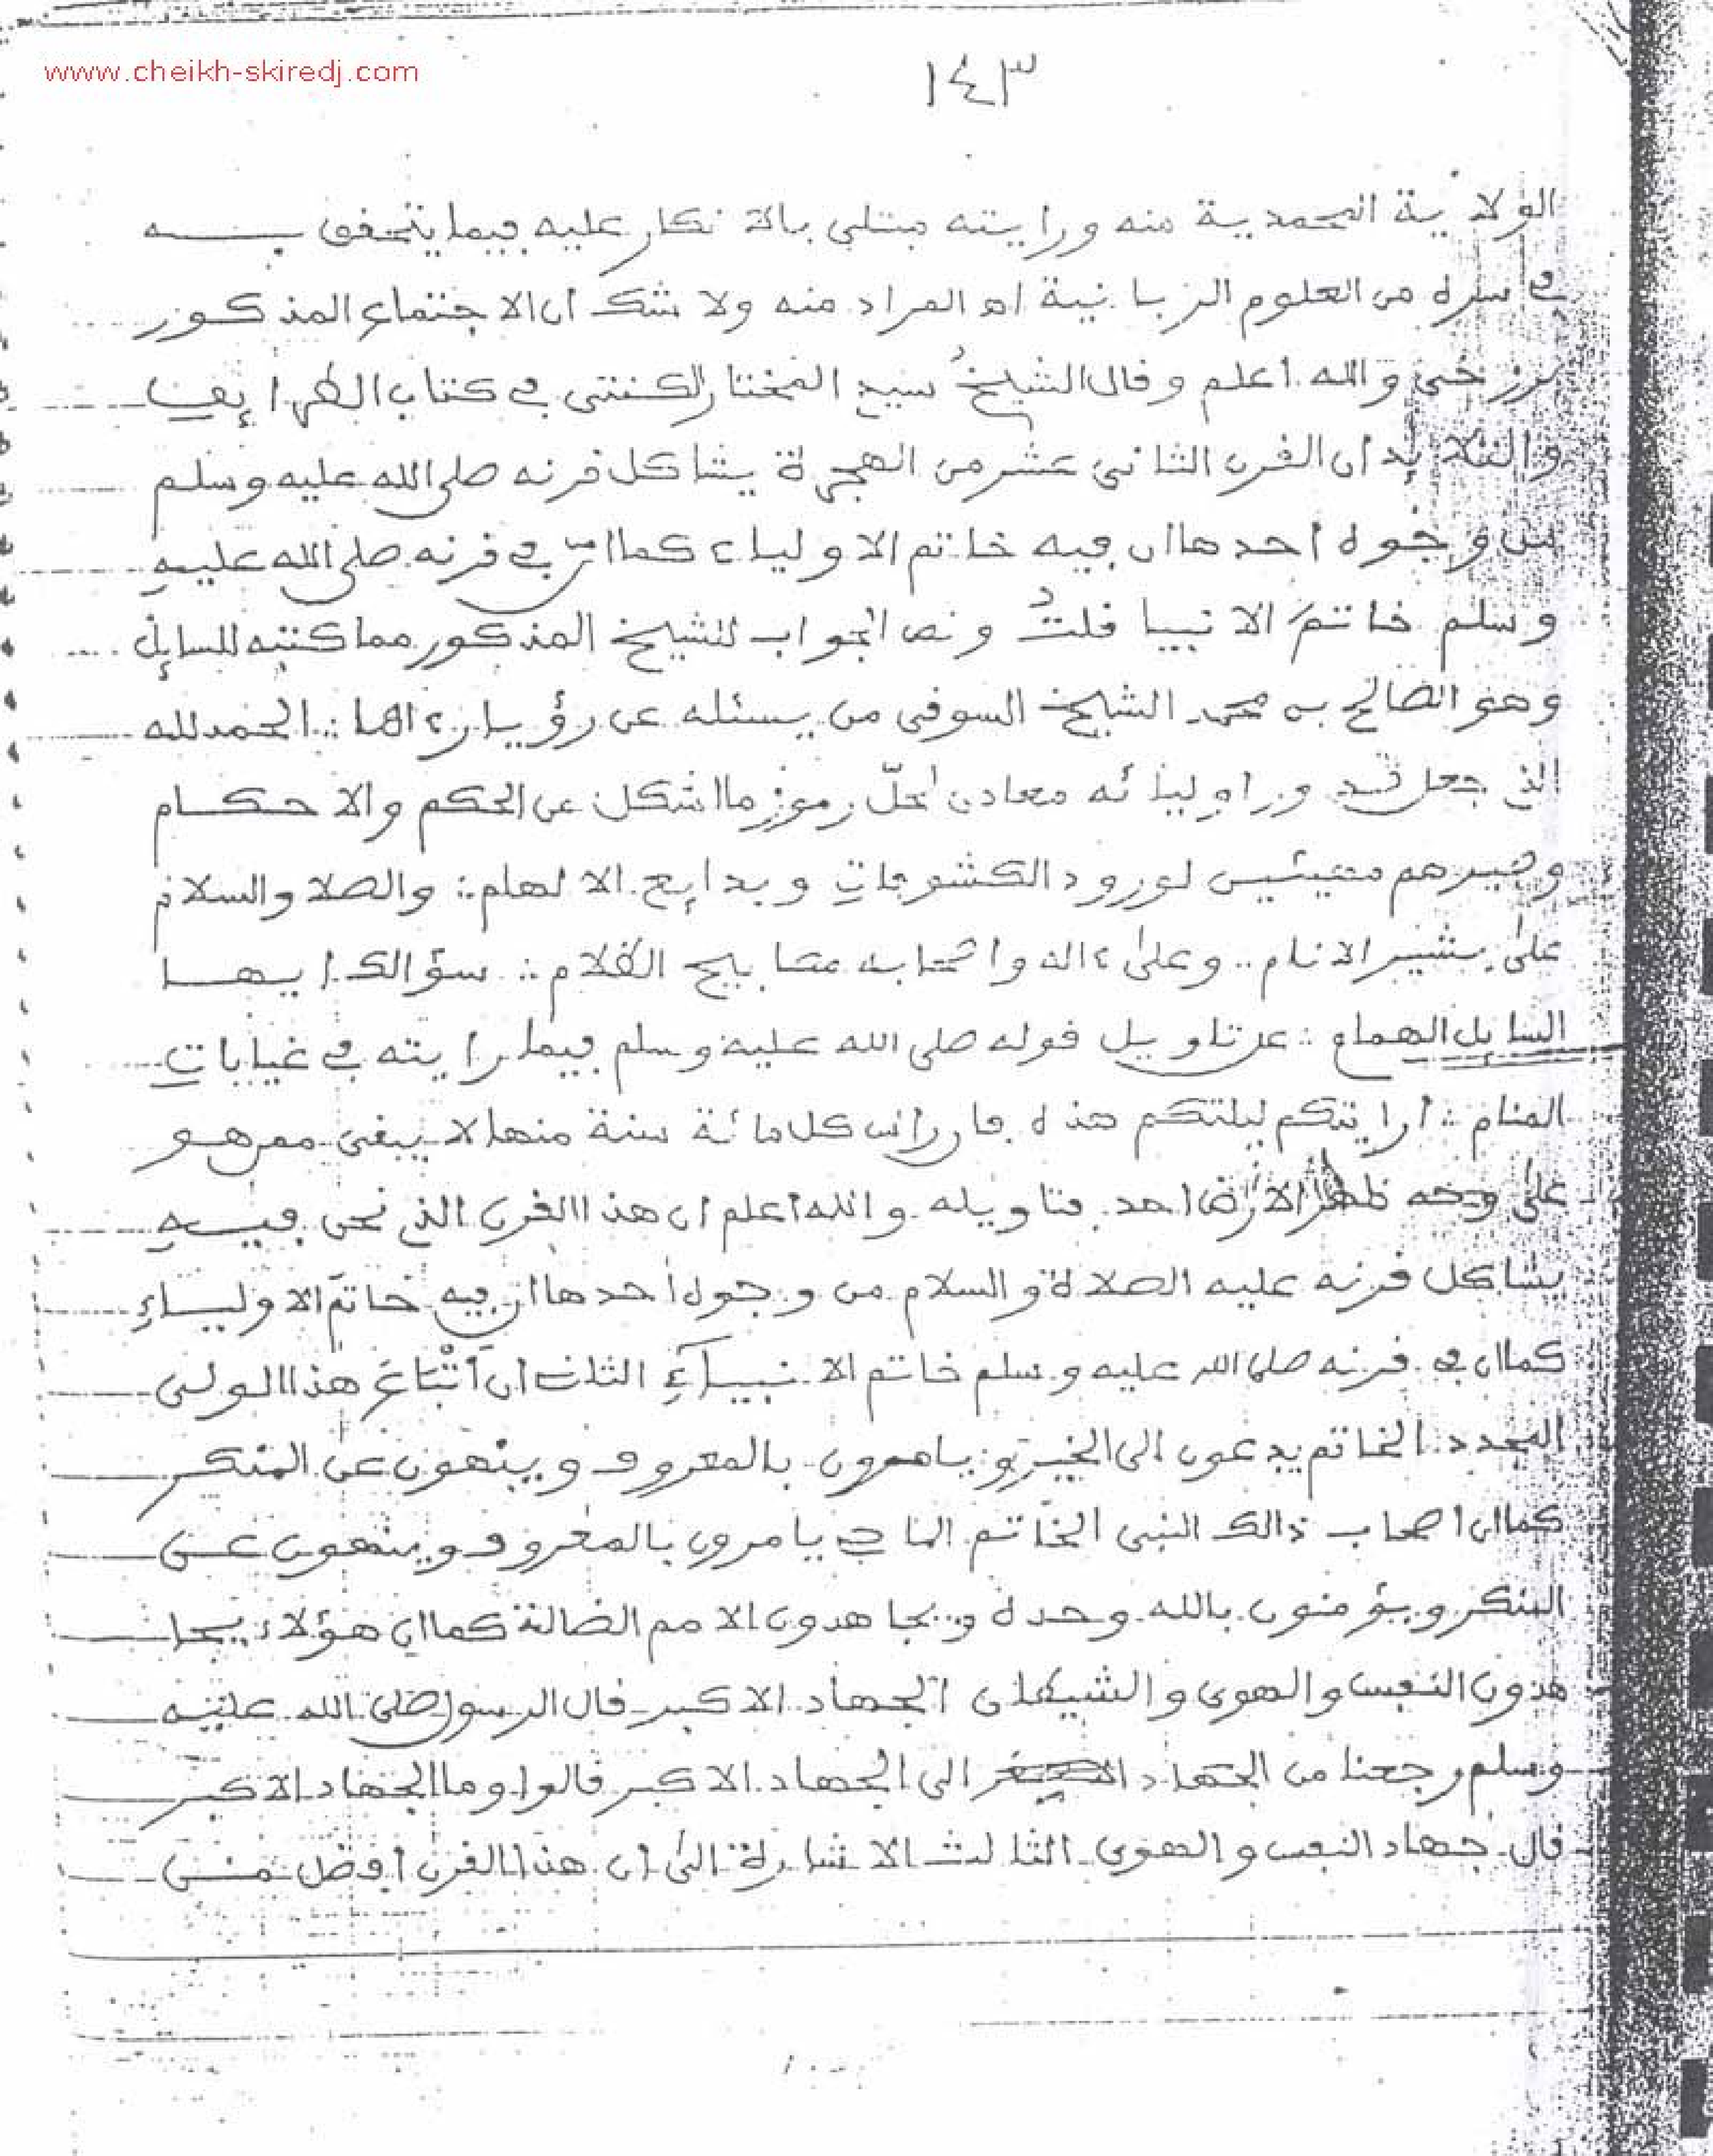 www.cheikh-skiredj.com
١٤٣
الولاية المحمدية منه ورايته مبتلى بالانكار عليه فيما يتحقق به
في سره من العلوم الربانية اه المراد منه ولا شك ان الاجتماع المذكور
برزخي والله اعلم وقال الشيخ سيدي المختار الكنتي في كتاب الطرايف
والتلايد ان القرن الثاني عشر من الهجرة يشاكل قرنه صلى الله عليه وسلم
من وجوه احدها ان فيه خاتم الاولياء كما ان في قرنه صلى الله عليه
وسلم خاتم الانبيا قلت ونص الجواب للشيخ المذكور مما كتبه للسايل
وهو الصالح بن محمد الشيخ السوقي من يسئله عن رؤيا رءاها ∴ الحمد لله
الذي جعل اوليائه معادن لحل رموز ما اشكل عن الحكم والاحكام
وصيرهم متهيئين لورود الكشوفات وبدايع الالهام ∴ والصلا والسلام
على بشير الانام .. وعلى ءاله واصحابه مصابيح الظلام ∴ سؤالك ايها
السايل الهمام ∴ عن تاويل قوله صلى الله عليه وسلم فيما رايته في غيابات
المنام ∴ ارايتكم ليلتكم هذه فان راس كل مائة سنة منها لا يبقى ممن هو
على وجه ظهر الارض احد فتاويله والله اعلم ان هذا القرن الذي نحن فيه
يشاكل قرنه عليه الصلاة والسلام من وجوه احدها ان فيه خاتم الاولياء
كما ان في قرنه صلى الله عليه وسلم خاتم الانبيآء الثاني ان أتْباع هذا الولي
المجدد الخاتم يدعون الى الخير ويامرون بالمعروف وينهون عن المنكر
كما ان اصحاب ذالك النبي الخاتم الماحي يامرون بالمعروف وينهون عن
المنكر ويؤمنون بالله وحده ويجاهدون الامم الضالة كما ان هؤلاء يجا
هدون النفس والهوى والشيطان الجهاد الاكبر قال الرسول صلى الله عليه
وسلم رجعنا من الجهاد الاصغر الى الجهاد الاكبر قالوا وما الجهاد الاكبر
قال جهاد النفس والهوى الثالث الاشارة الى ان هذا القرن افضل من